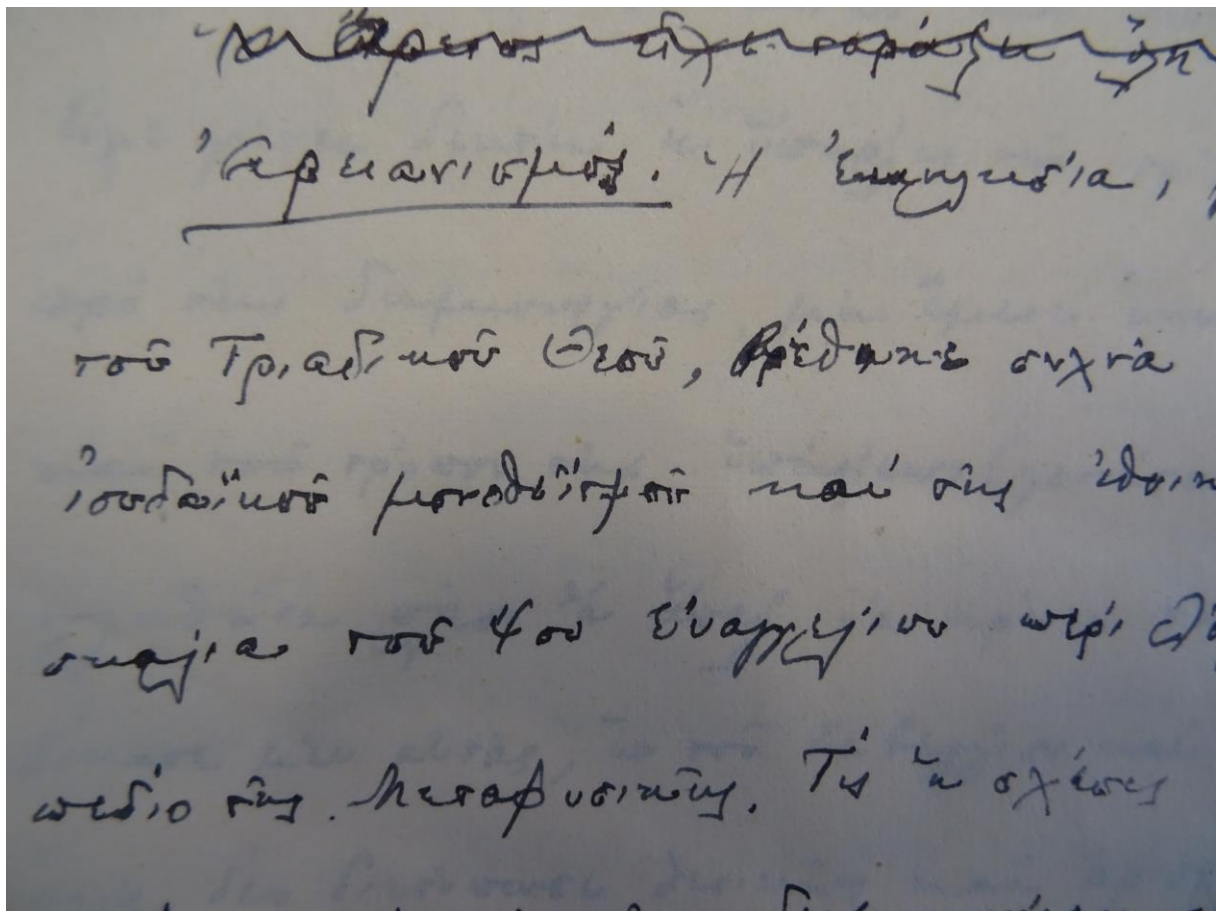 ὁ Ἄρειος εἶχε ταράξει ὅλη
Ἀρειανισμός. Ἡ Ἐκκλησία,
τοῦ Τριαδικοῦ Θεοῦ, βρέθηκε συχνά
ἰουδαϊκοῦ μονοθεϊσμοῦ καί τῆς ἐθνικ
σκαλία τοῦ 4ου Εὐαγγελίου περί
πεδίο τῆς Μεταφυσικῆς. Τίς ἡ σχέσις